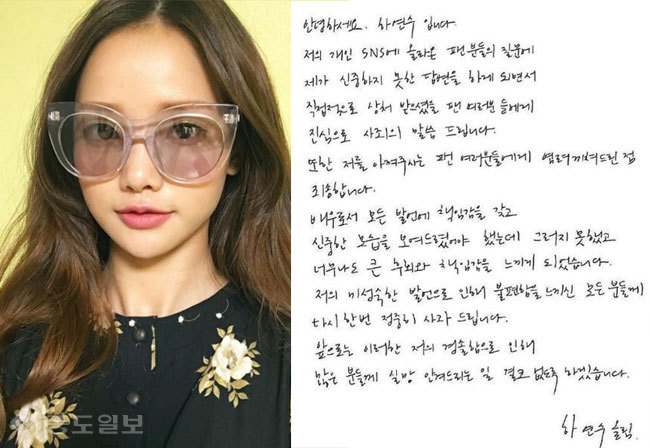 안녕하세요. 하연수 입니다
저의 개인 SNS에 올라온 팬 분들의 질문에
제가 신중하지 못한 답변을 하게 되면서
직접적으로 상처 받으셨을 팬 여러분 들에게
진심으로 사죄의 말씀 드립니다.
또한 저를 아껴주시는 팬 여러분들에게 염려 끼쳐드린 점
죄송합니다.
배우로서 모든 발언에 책임감을 갖고
신중한 모습을 보여드렸어야 했는데 그러지 못했고
너무나도 큰 후회와 책임감을 느끼게 되었습니다.
저의 미성숙한 발언으로 인해 불편함을 느끼신 모든 분들께
다시 한번 정중히 사과 드립니다.
앞으로는 이러한 저의 경솔함으로 인해
많은 분들께 실망 안겨드리는 일 결코 없도록 하겠습니다.
하 연수 올림.
중도일보